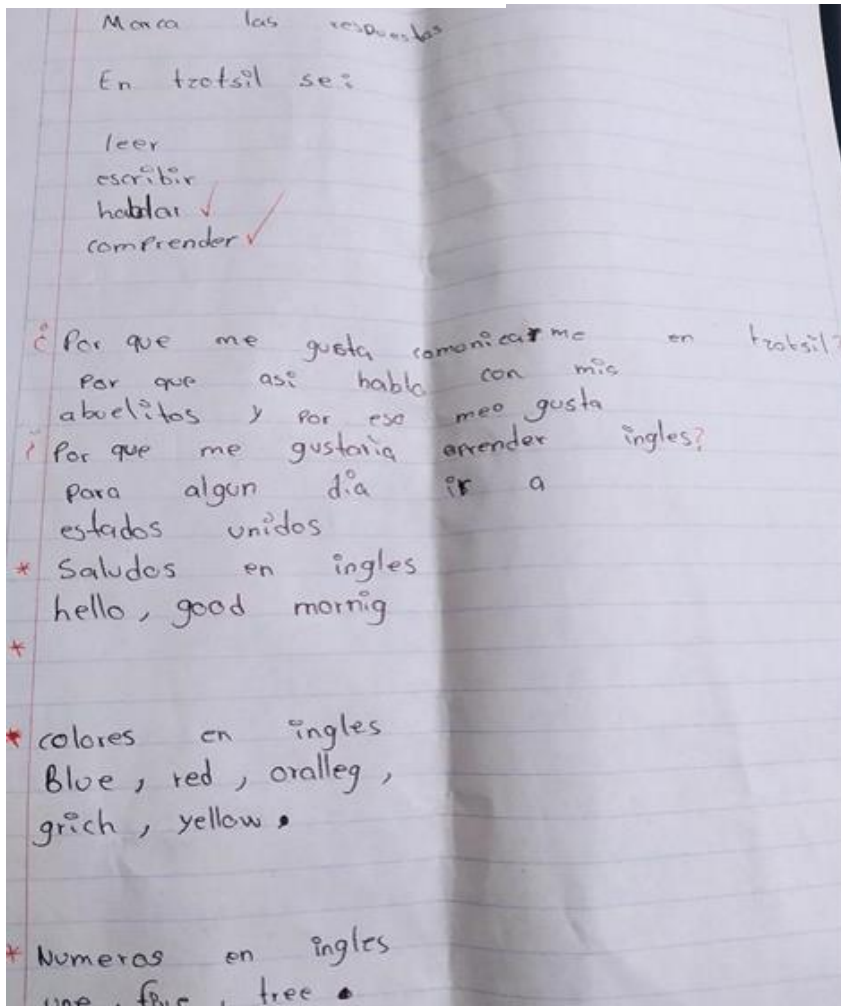 Marca las respuestas
En tzotsil se:
leer
escribir
hablar ✓
comprender ✓
¿ Por que me gusta comonicarme en tzotsil?
Por que asi hablo con mis
abuelitos y por eso meo gusta
¿ Por que me gustaria aprender ingles?
Para algun dia ir a
estados unidos
* Saludos en ingles
hello, good mornig
*
* colores en ingles
Blue, red, oralleg,
grich, yellow.
* Numeros en ingles
tree.